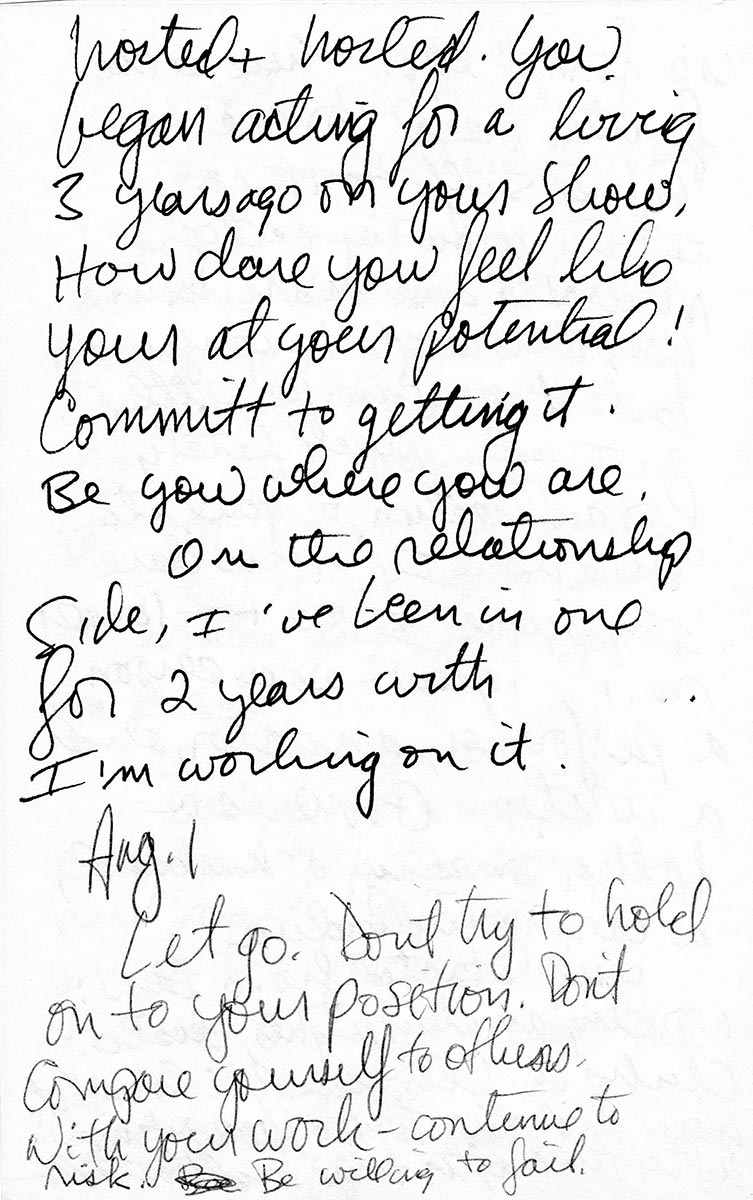 hosted + hosted. You
began acting for a living
3 years ago on your show.
How dare you feel like
your at your potential!
Committ to getting it.
Be you where you are.
On the relationship
side, I've been in one
for 2 years with
I'm working on it.
Aug. 1
Let go. Don't try to hold
on to your position. Don't
compare yourself to others.
With your work - continue to
risk. Be willing to fail.